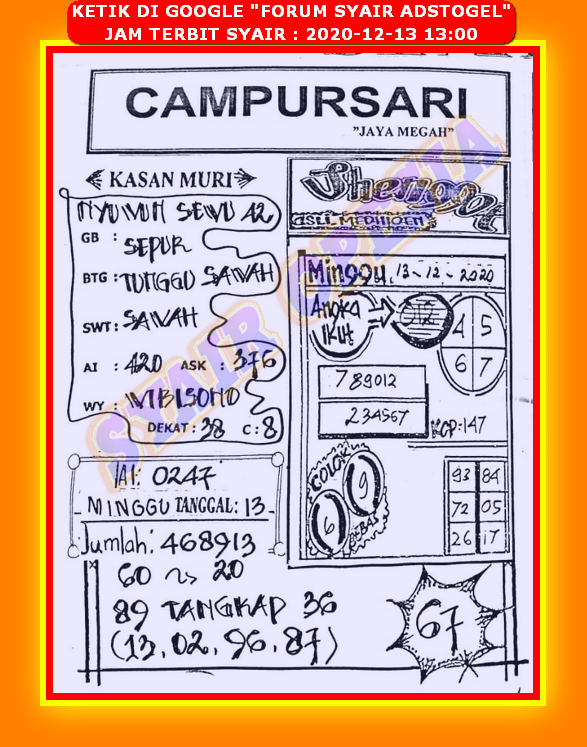 KETIK DI GOOGLE "FORUM SYAIR ADSTOGEL"
JAM TERBIT SYAIR : 2020-12-13 13:00
CAMPURSARI
"JAYA MEGAH"
KASAN MURI
NYUWUN SEWU 42
GB : SEPUR
BTG : TUNGGU SAWAH
SWT : SAWAH
AI : 420 ASK : 376
WY : WIBISONO
DEKAT : 38 C : 8
AI: 0247
MINGGU TANGGAL: 13
Jumlah: 468913
60 ~> 20
89 TANGKAP 36
(13, 02, 96, 87)
67
Minggu, 13-12-2020
Angka
IKUt
012
4 5
6 7
789012
234567
KOP: 147
COLOK
6 9
BEBAS
93 84
72 05
26 17
SYAIR OPESIA